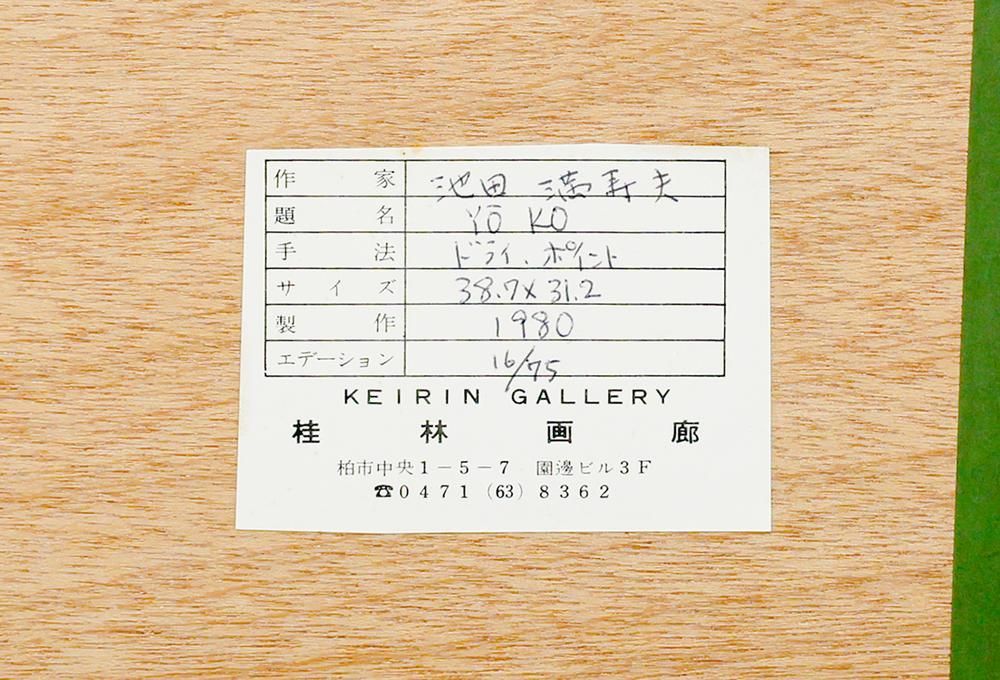 作家 池田 満寿夫
題名 YŌ KO
手法 ドライ、ポイント
サイズ 38.7×31.2
製作 1980
エデーション 16/75
KEIRIN GALLERY
桂林画廊
柏市中央1-5-7 園邊ビル3F
☎0471(63)8362